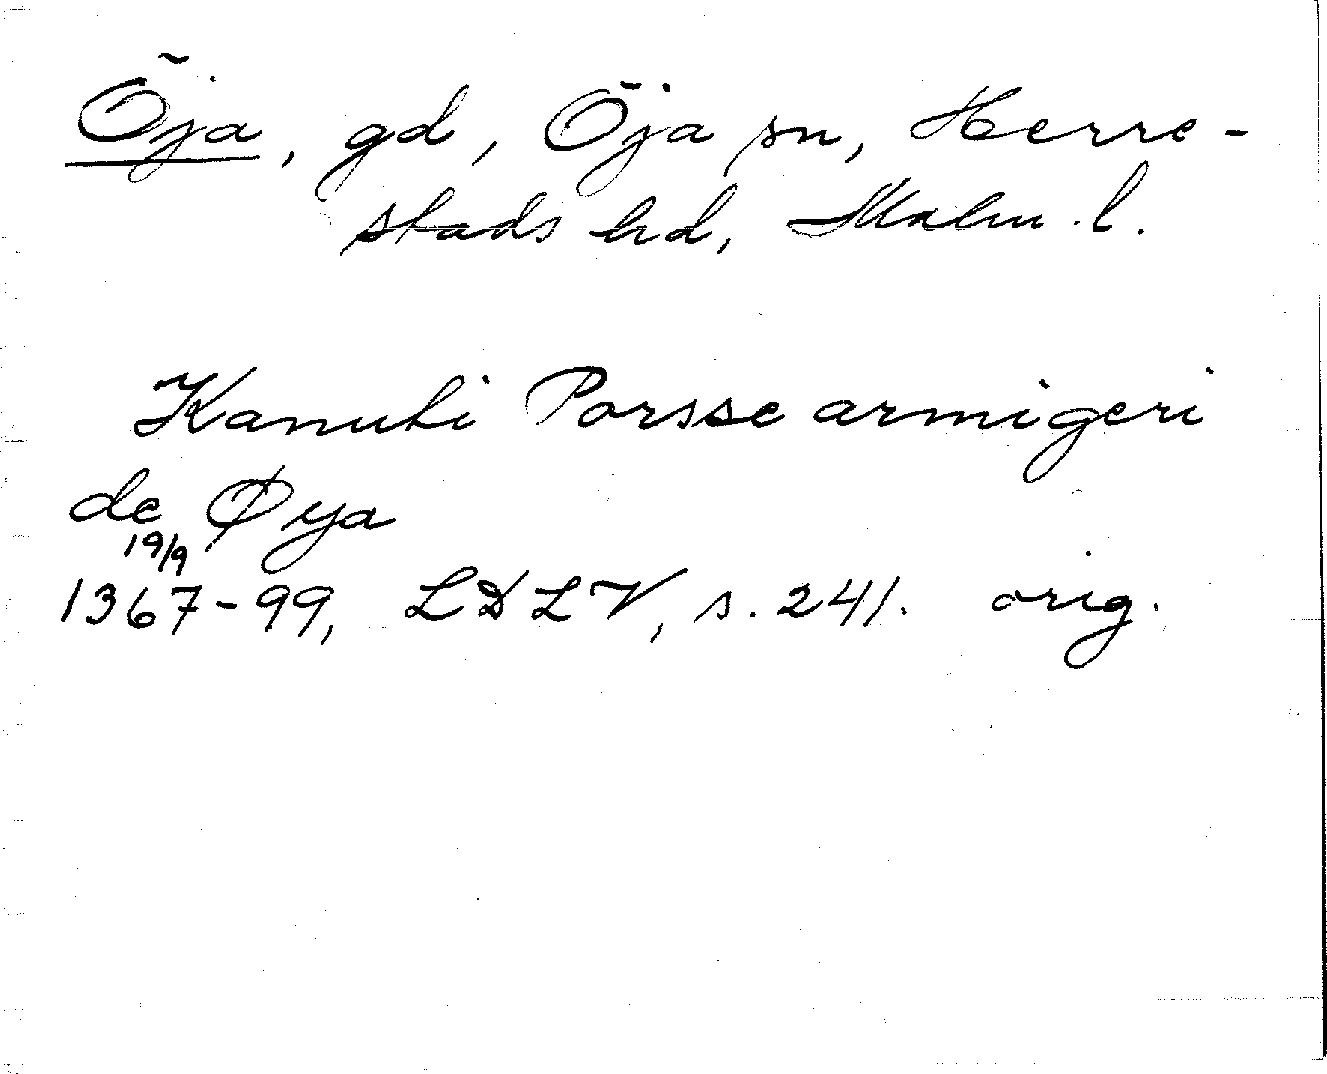 Öja, gd, Öja sn, Herre-
stads hd, Malm. l.
Kanuti Porsse armigeri
de Øya
19/9
1367-99, LDLV, s. 241. orig.